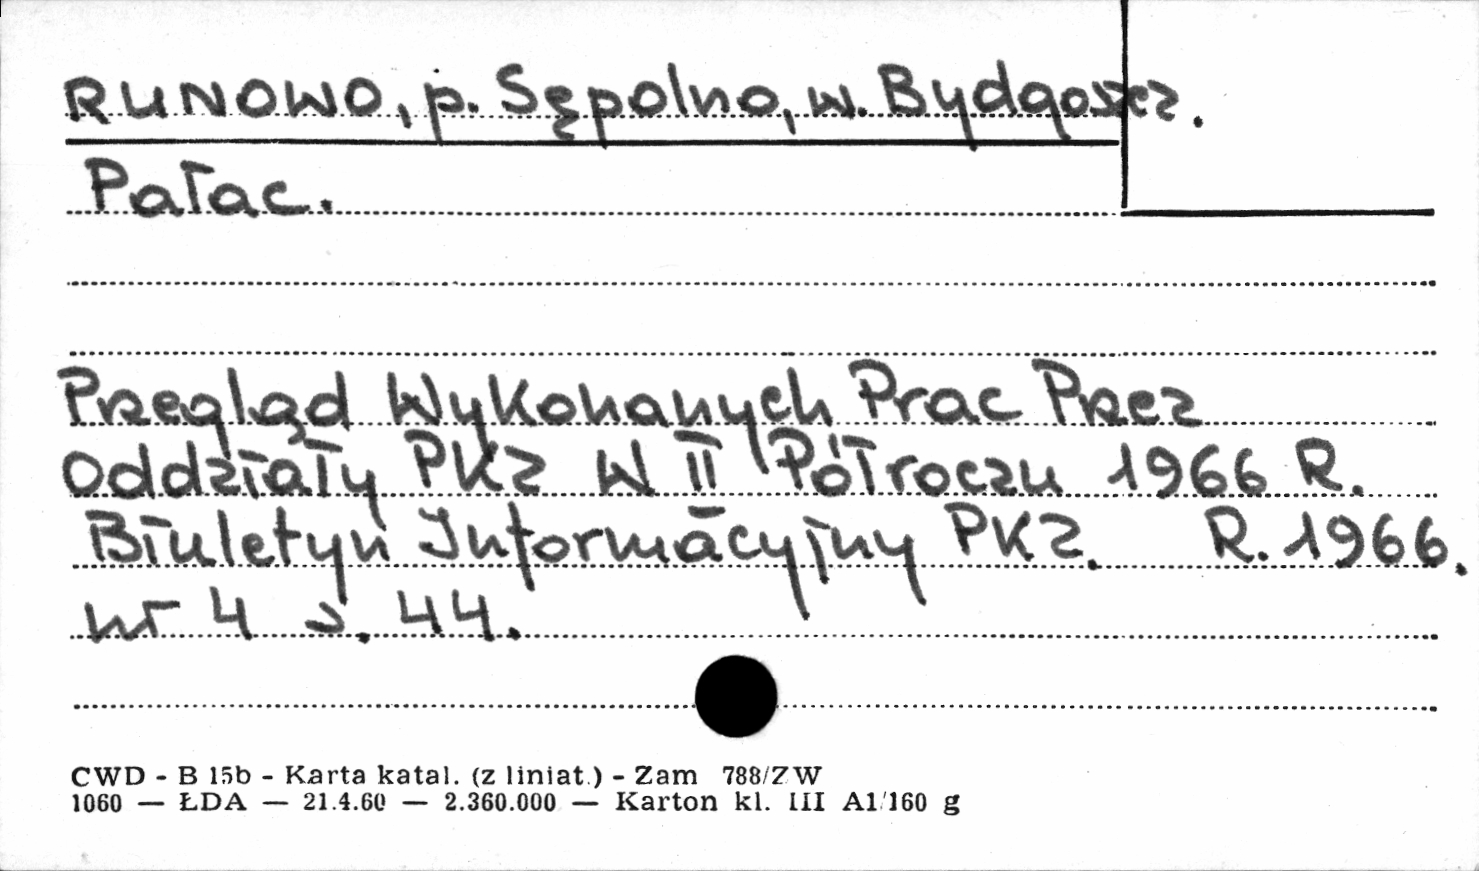 RUNOWO, p. Sępolno, w. Bydgoszcz.
Pałac.
Przegląd Wykonanych Prac Przez
Oddziały PKZ W II Półroczu 1966 R.
Biuletyn Informacyjny PKZ. R. 1966.
nr 4 s. 44.
CWD - B 15b - Karta katal. (z liniat.) - Zam 788/ZW
1060 — ŁDA — 21.4.60 — 2.360.000 — Karton kl. III A1/160 g